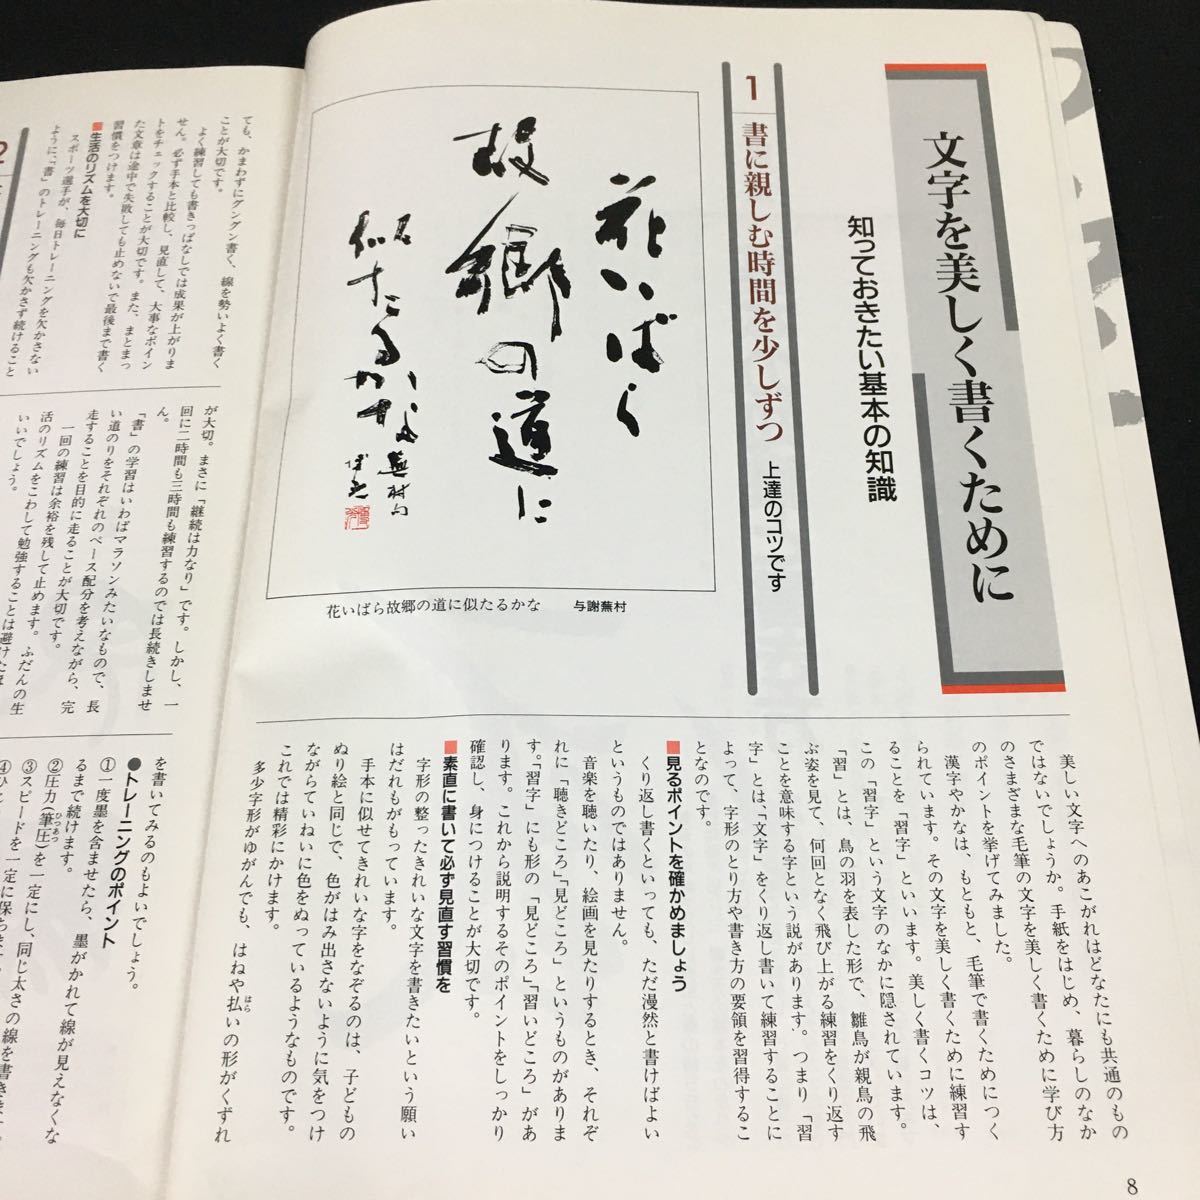 文字を美しく書くために
知っておきたい基本の知識
1 書に親しむ時間を少しずつ 上達のコツです
花いばら
故郷の道に
似たるかな
蕪村句
花いばら故郷の道に似たるかな 与謝蕪村
美しい文字へのあこがれはどなたにも共通のもの
ではないでしょうか。手紙をはじめ、暮らしのなか
のさまざまな毛筆の文字を美しく書くために学び方
のポイントを挙げてみました。
漢字やかなは、もともと、毛筆で書くためにつく
られています。その文字を美しく書くために練習す
ることを「習字」といいます。美しく書くコツは、
この「習字」という文字のなかに隠されています。
「習」とは、鳥の羽を表した形で、雛鳥が親鳥の飛
ぶ姿を見て、何回となく飛び上がる練習をくり返す
ことを意味する字という説があります。つまり「習
字」とは、「文字」をくり返し書いて練習することに
よって、字形のとり方や書き方の要領を習得するこ
となのです。
■見るポイントを確かめましょう
くり返し書くといっても、ただ漫然と書けばよい
というものではありません。
音楽を聴いたり、絵画を見たりするとき、それぞ
れに「聴きどころ」「見どころ」というものがありま
す。「習字」にも形の「見どころ」「習いどころ」があ
ります。これから説明するそのポイントをしっかり
確認し、身につけることが大切です。
■素直に書いて必ず見直す習慣を
字形の整ったきれいな文字を書きたいという願い
はだれもがもっています。
手本に似せてきれいな字をなぞるのは、子どもの
ぬり絵と同じで、色がはみ出さないように気をつけ
ながらていねいに色をぬっているようなものです。
これでは精彩にかけます。
多少字形がゆがんでも、はねや払いの形がくずれ
はら
ても、かまわずにグングン書く、線を勢いよく書く
ことが大切です。
よく練習しても書きっぱなしでは成果が上がりま
せん。必ず手本と比較し、見直して、大事なポイン
トをチェックすることが大切です。また、まとまっ
た文章は途中で失敗しても止めないで最後まで書く
習慣をつけます。
■生活のリズムを大切に
スポーツ選手が、毎日トレーニングを欠かさない
ように、「書」のトレーニングも欠かさず続けること
が大切。まさに「継続は力なり」です。しかし、一
回に二時間も三時間も練習するのでは長続きしませ
ん。
「書」の学習はいわばマラソンみたいなもので、長
い道のりをそれぞれのペース配分を考えながら、完
走することを目的に走ることが大切です。
一回の練習は余裕を残して止めます。ふだんの生
活のリズムをこわして勉強することは避けた
いいでしょう。
2
を書いてみるのもよいでしょう。
●トレーニングのポイント
①一度墨を含ませたら、墨がかれて線が見えなくな
るまで続けます。
②圧力(筆圧)を一定にし、同じ太さの線を書きます。
ひつあつ
③スピードを一定に保ちます。
8